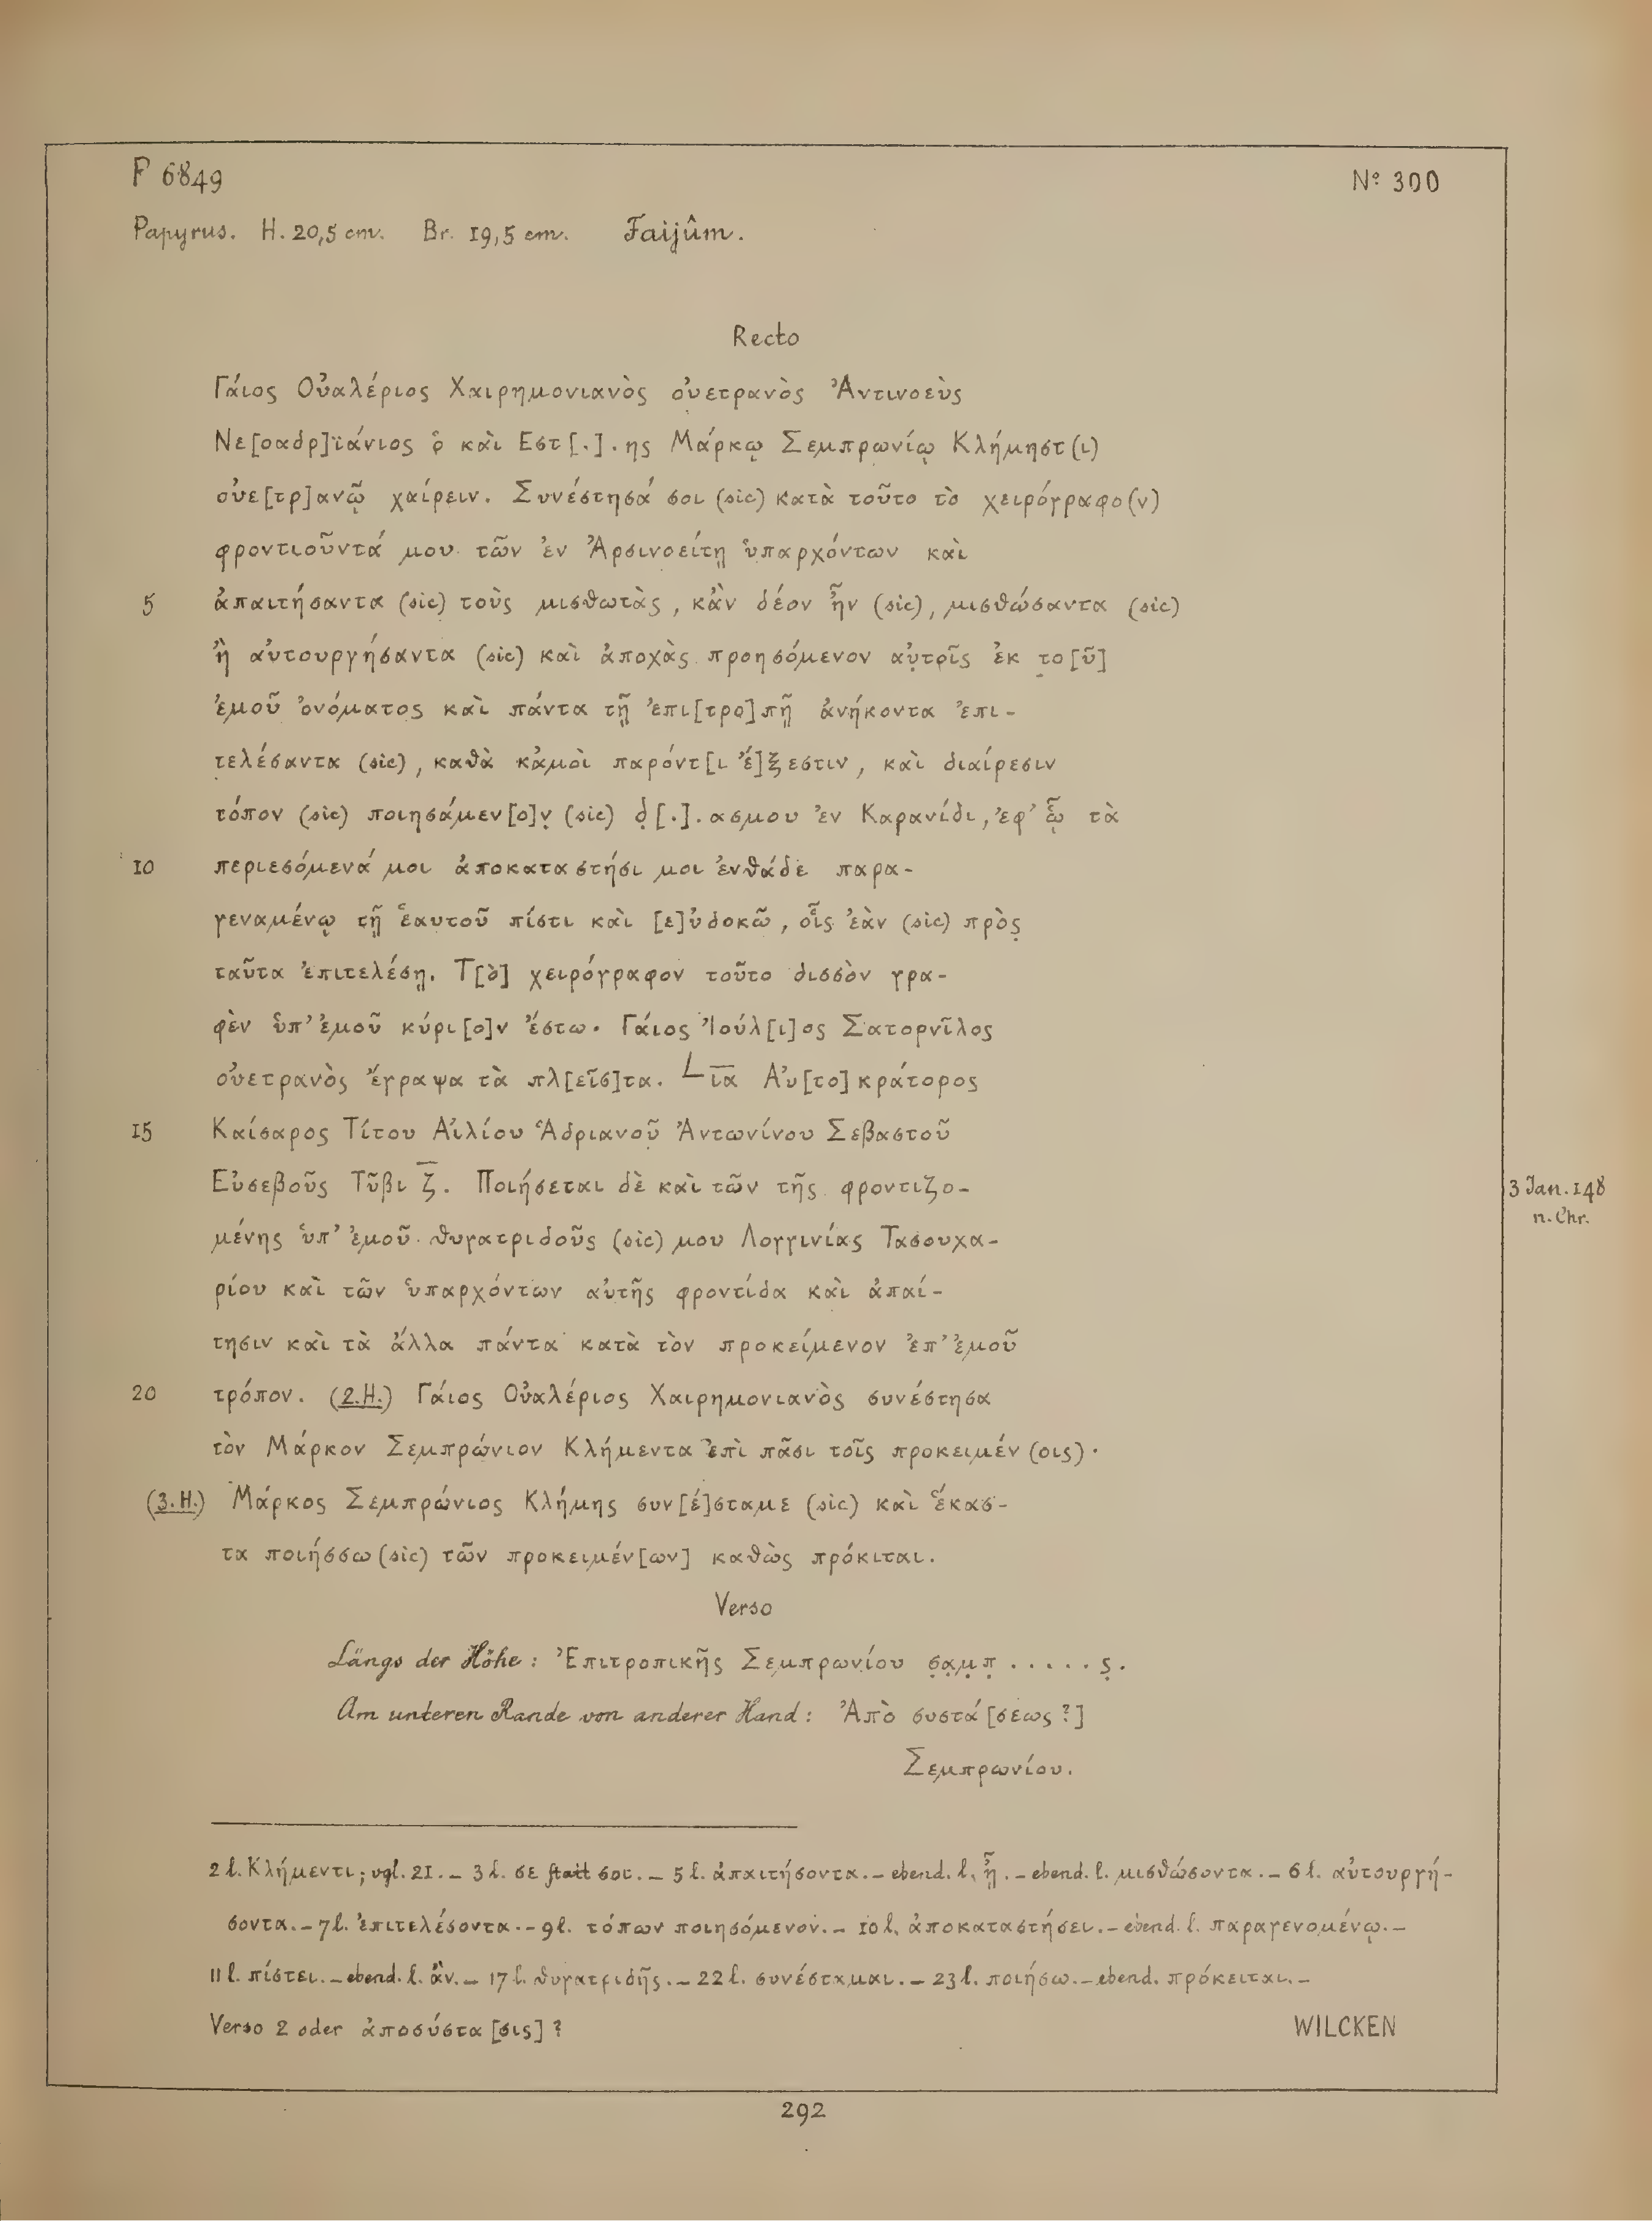 P 6849
Nº 300
Papyrus. H. 20,5 cm. Br. 19,5 cm. Faijûm.
Recto
Γάιος Οὐαλέριος Χαιρημονιανὸς οὐετρανὸς Ἀντινοεὺς
Νε[οαδρ]ϊάνιος ὁ καὶ Εστ[.].ης Μάρκῳ Σεμπρωνίῳ Κλήμηστ(ι)
οὐε[τρ]ανῷ χαίρειν. Συνέστησά σοι (sic) κατὰ τοῦτο τὸ χειρόγραφο(ν)
φροντιοῦντά μου τῶν ἐν Ἀρσινοείτῃ ὑπαρχόντων καὶ
5 ἀπαιτήσαντα (sic) τοὺς μισθωτὰς, κἂν δέον ἦν (sic), μισθώσαντα (sic)
ἢ αὐτουργήσαντα (sic) καὶ ἀποχὰς προησόμενον αὐ̣το̣ῖς ἐκ τ̣ο[ῦ]
ἐμοῦ ὀνόματος καὶ πάντα τῇ ἐπι[τρο]πῇ ἀνήκοντα ἐπι-
τελέσαντα (sic), καθὰ κἀμοὶ παρόντ[ι ἔ]ξεστιν, καὶ διαίρεσιν
τόπον (sic) ποιησάμεν[ο]ν̣ (sic) δ̣[.].ασμου ἐν Καρανίδι, ἐφ᾽ ᾧ τὰ
10 περιεσόμενά μοι ἀποκαταστήσι μοι ἐνθάδε παρα-
γεναμένῳ τῇ ἑαυτοῦ πίστι καὶ [ε]ὐδοκῶ, οἷς ἐὰν (sic) πρὸς̣
ταῦτα ἐπιτελέσῃ. Τ[ὸ] χειρόγραφον τοῦτο δισσὸν γρα-
φὲν ὑπ᾽ ἐμοῦ κύρι[ο]ν ἔστω. Γάιος Ἰούλ[ι]ος Σατορνῖλος
οὐετρανὸς ἔγραψα τὰ πλ[εῖσ]τα. L ι̅α̅ Αὐ[το]κράτορος
15 Καίσαρος Τίτου Αἰλίου Ἁδριανοῦ Ἀντωνίνου Σεβαστοῦ
Εὐσεβοῦς Τῦβι ζ̅. Ποιήσεται δὲ καὶ τῶν τῆς φροντιζο-
3 Jan. 148
n. Chr.
μένης ὑπ᾽ ἐμοῦ θυγατριδοῦς (sic) μου Λογγινίας Τασουχα-
ρίου καὶ τῶν ὑπαρχόντων αὐτῆς φροντίδα καὶ ἀπαί-
τησιν καὶ τὰ ἄλλα πάντα κατὰ τὸν προκείμενον ἐπ᾽ ἐμοῦ
20 τρόπον. (2.H.) Γάιος Οὐαλέριος Χαιρημονιανὸς συνέστησα
τὸν Μάρκον Σεμπρώνιον Κλήμεντα ἐπὶ πᾶσι τοῖς προκειμέν(οις).
(3.H.) Μάρκος Σεμπρώνιος Κλήμης συν[έ]σταμε (sic) καὶ ἕκασ-
τα ποιήσσω (sic) τῶν προκειμέν[ων] καθὼς πρόκιται.
Verso
Längs der Höhe: Ἐπιτροπικῆς Σεμπρωνίου σ̣α̣μ̣π̣ . . . . . ς̣.
Am unteren Rande von anderer Hand: Ἀπὸ συστά[σεως?]
Σεμπρωνίου.
2 l. Κλήμεντι; vgl. 21. – 3 l. σε statt σοι. – 5 l. ἀπαιτήσοντα. – ebend. l. ᾖ. – ebend. l. μισθώσοντα. – 6 l. αὐτουργή-
σοντα. – 7 l. ἐπιτελέσοντα. – 9 l. τόπων ποιησόμενον. – 10 l. ἀποκαταστήσει. – ebend. l. παραγενομένῳ. –
11 l. πίστει. – ebend. l. ἂν. – 17 l. θυγατριδῆς. – 22 l. συνέσταμαι. – 23 l. ποιήσω. – ebend. πρόκειται. –
Verso 2 oder ἀποσύστα[σις]?
WILCKEN
292